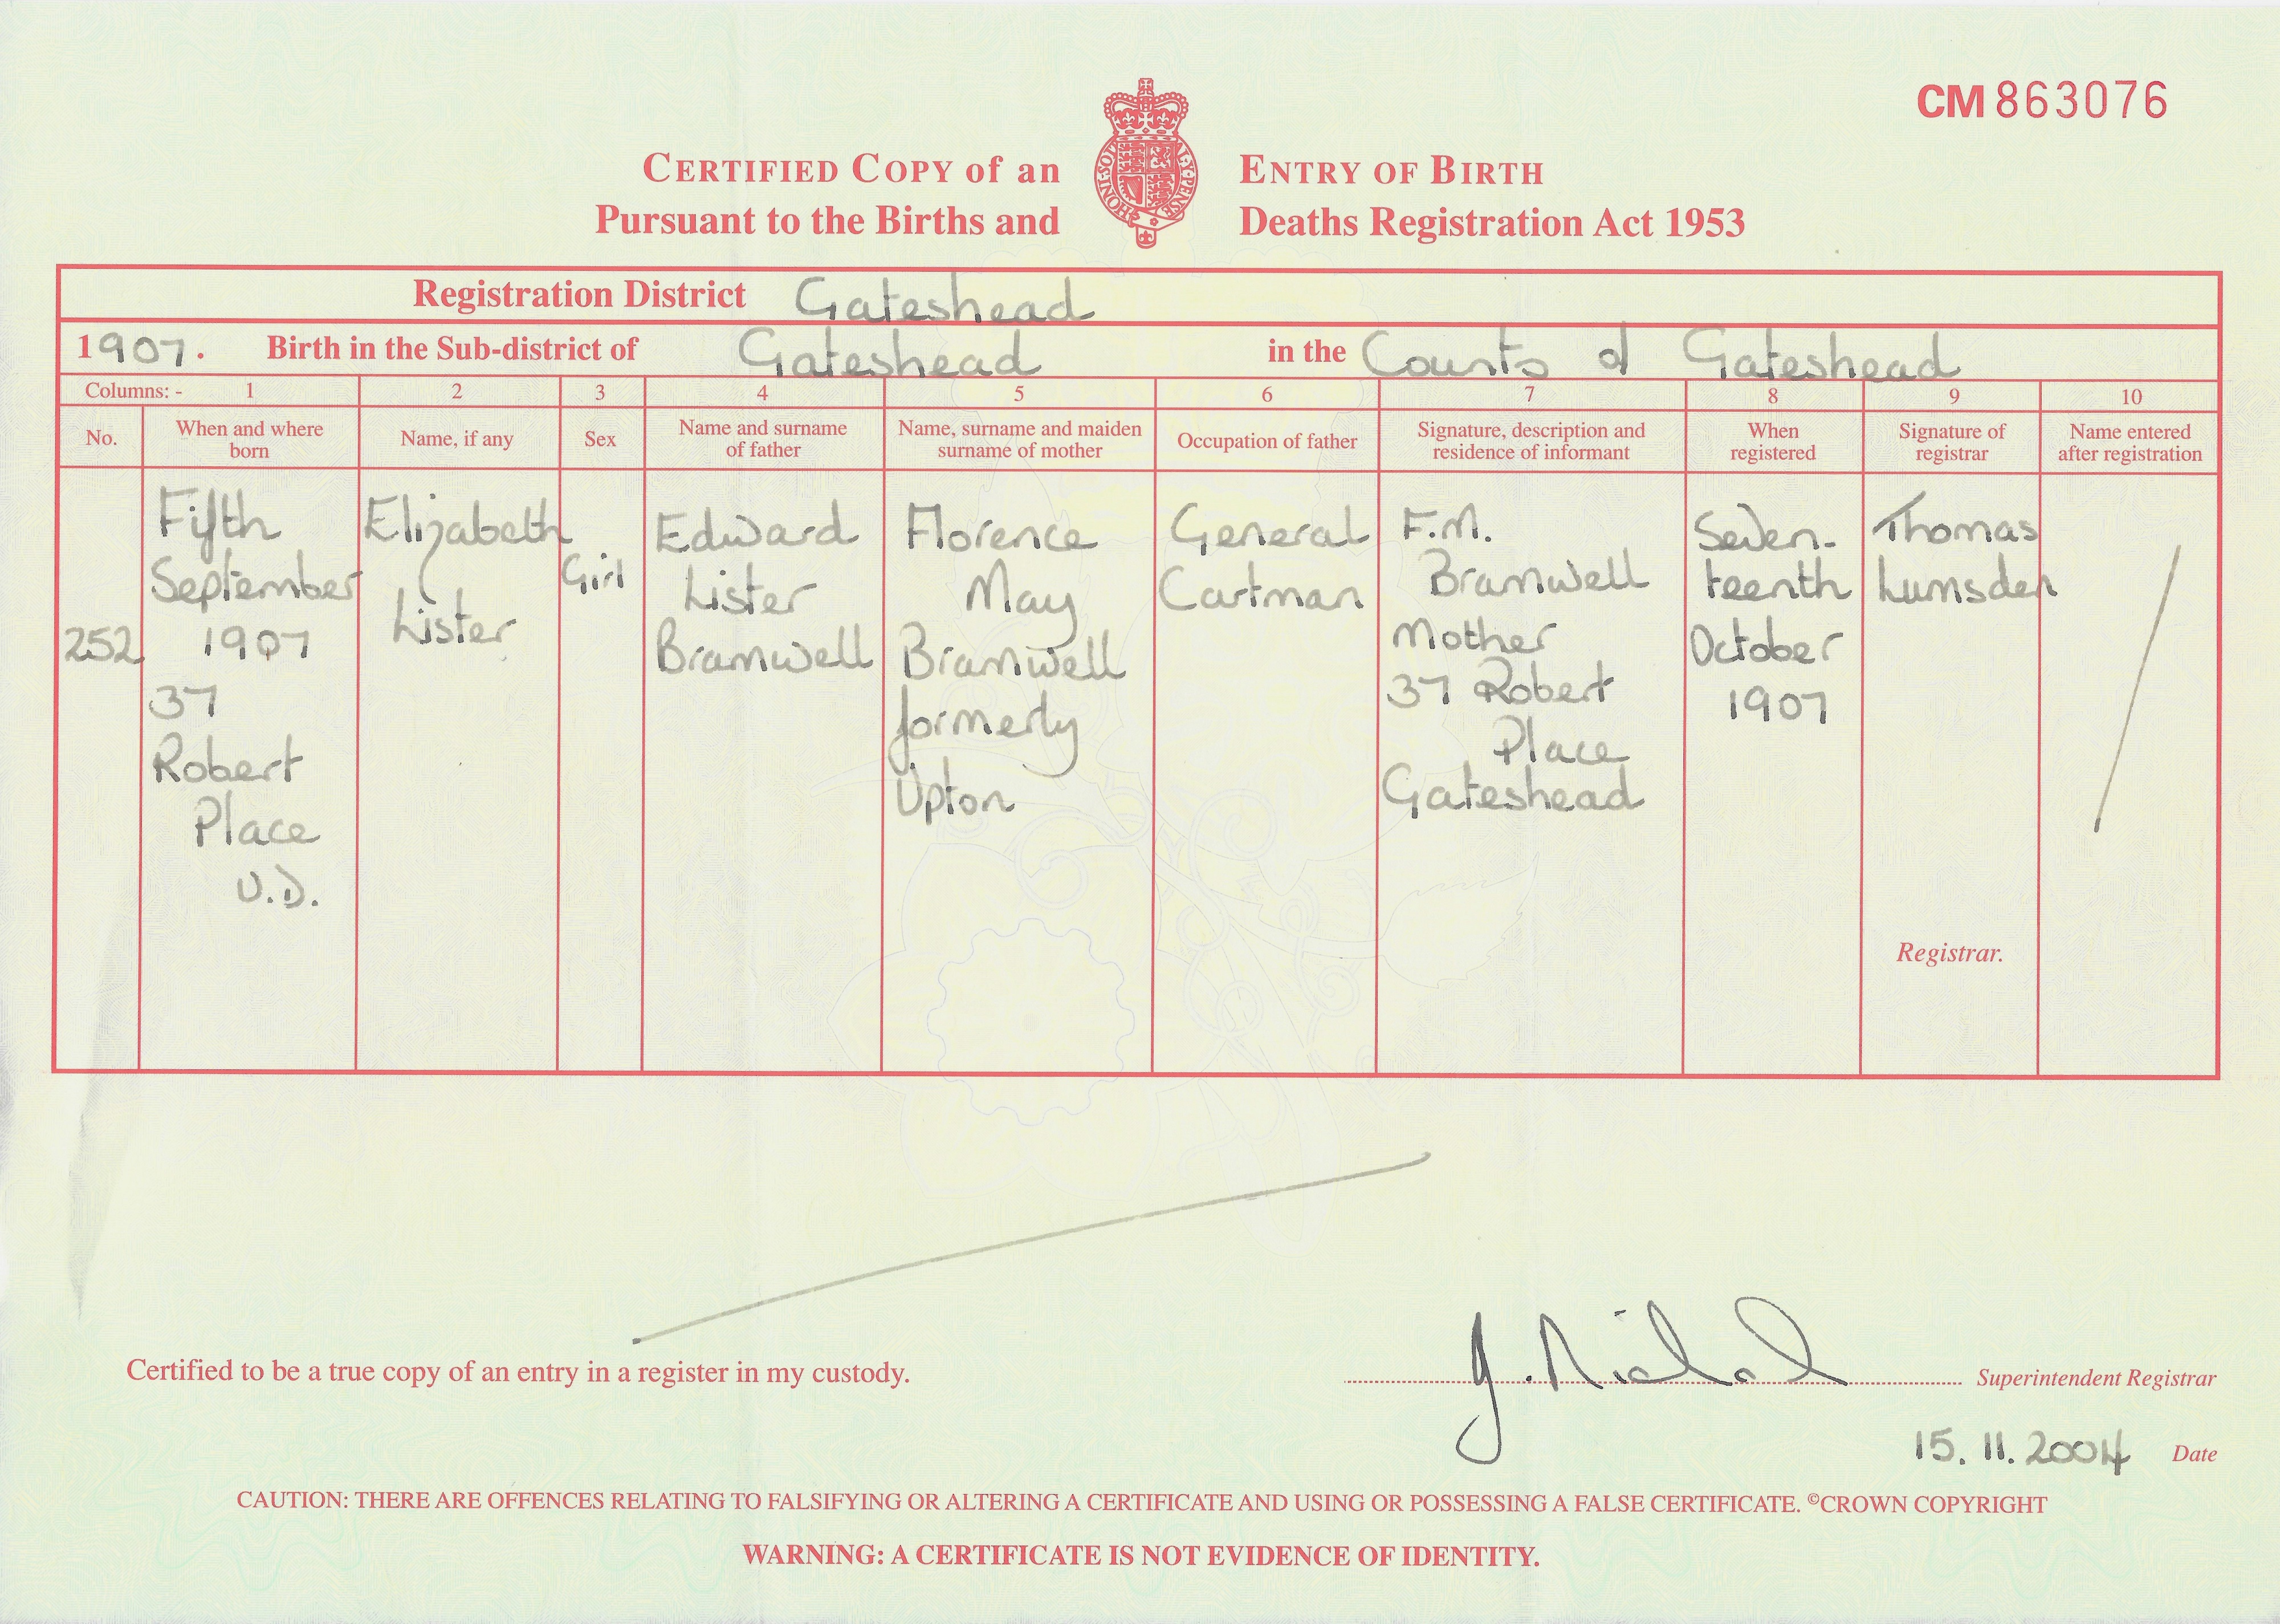 CM 863076
CERTIFIED COPY of an ENTRY OF BIRTH
Pursuant to the Births and Deaths Registration Act 1953
HONI·SOIT
AL·Y·PENSE
Registration District Gateshead
1907. Birth in the Sub-district of Gateshead in the County of Gateshead
Columns: - 1 2 3 4 5 6 7 8 9 10
No.
When and where
born
Name, if any
Sex
Name and surname
of father
Name, surname and maiden
surname of mother
Occupation of father
Signature, description and
residence of informant
When
registered
Signature of
registrar
Name entered
after registration
252
Fifth
September
1907
37
Robert
Place
U.D.
Elizabeth
Lister
Girl
Edward
Lister
Bramwell
Florence
May
Bramwell
formerly
Upton
General
Cartman
F.M.
Bramwell
Mother
37 Robert
Place
Gateshead
Seven-
teenth
October
1907
Thomas
Lumsden
Registrar.
Certified to be a true copy of an entry in a register in my custody.
Superintendent Registrar
15. 11. 2004 Date
CAUTION: THERE ARE OFFENCES RELATING TO FALSIFYING OR ALTERING A CERTIFICATE AND USING OR POSSESSING A FALSE CERTIFICATE. ©CROWN COPYRIGHT
WARNING: A CERTIFICATE IS NOT EVIDENCE OF IDENTITY.